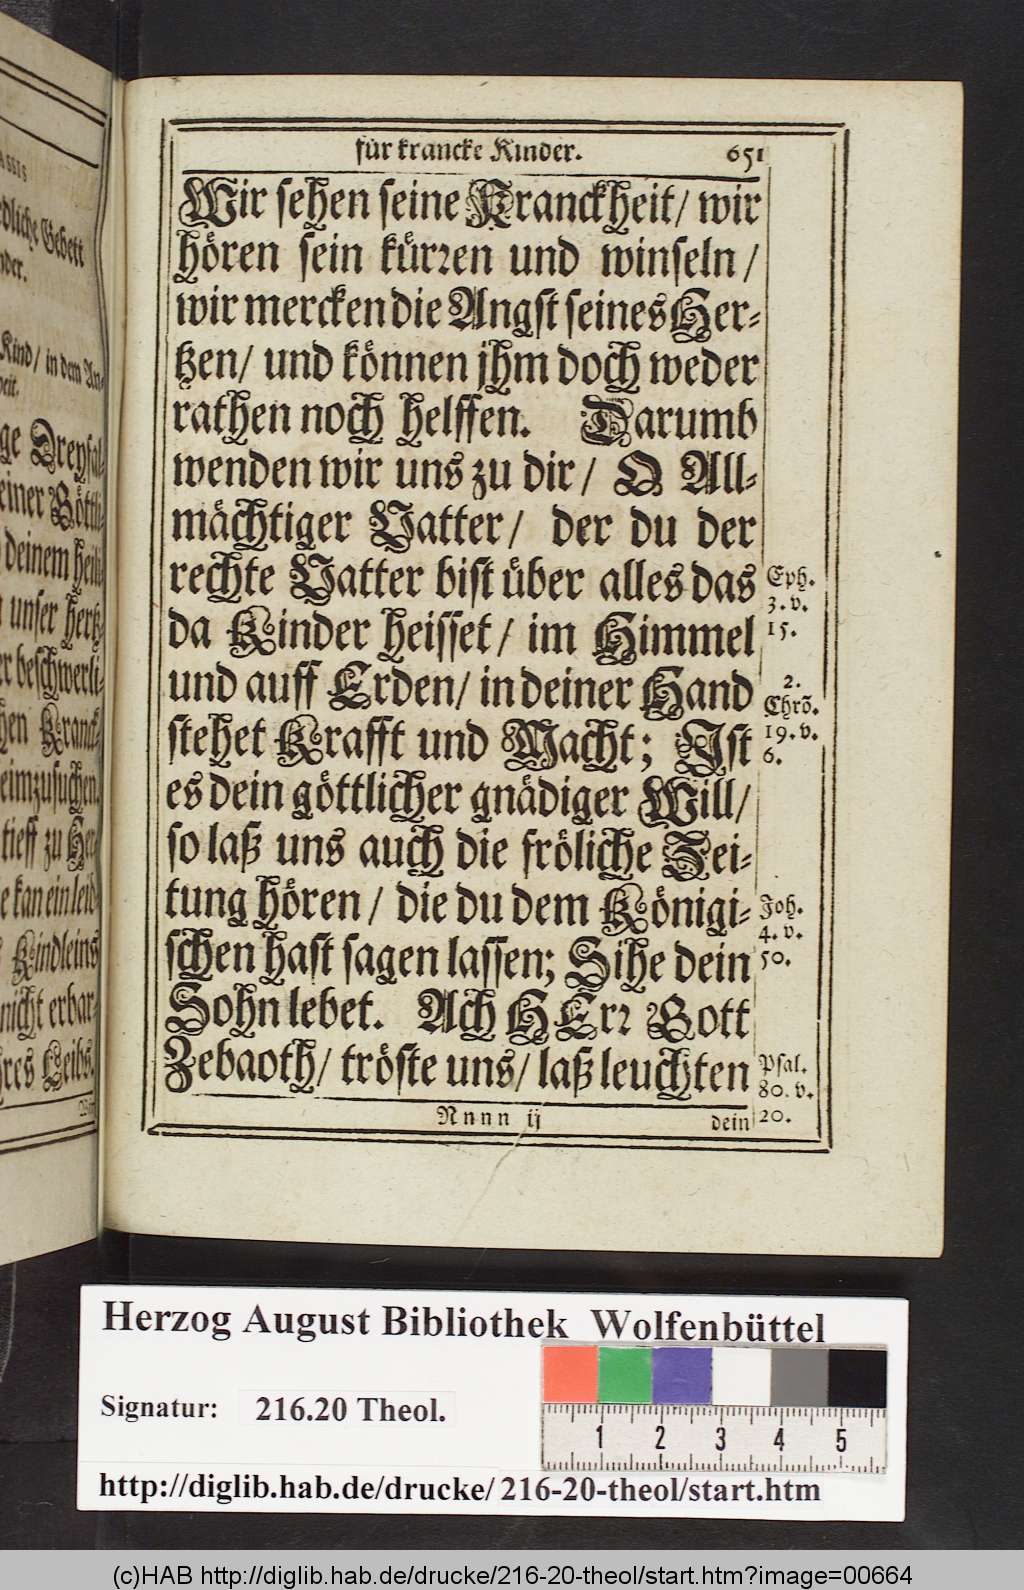 für krancke Kinder. 651
Wir sehen seine Kranckheit/ wir
hören sein kürren und winseln/
wir mercken die Angst seines Her-
tzen/ und können jhm doch weder
rathen noch helffen. Darumb
wenden wir uns zu dir/ O All-
mächtiger Vatter/ der du der
rechte Vatter bist über alles das
da Kinder heisset/ im Himmel
und auff Erden/ in deiner Hand
stehet Krafft und Macht; Ist
es dein göttlicher gnädiger Will/
so laß uns auch die fröliche Zei-
tung hören/ die du dem Königi-
schen hast sagen lassen; Sihe dein
Sohn lebet. Ach HErr Gott
Zebaoth/ tröste uns/ laß leuchten
Nnnn ij dein
Eph.
3. v.
15.
2.
Chrõ.
19. v.
6.
Joh.
4. v.
50.
Psal.
80. v.
20.
dliche Gebett
Kind/ in dem An-
ge Dreyfal-
einer Göttli-
deinem heili-
unser hertz-
er beschwerli-
hen Kranck-
eimzusuchen.
tieff zu Her-
e kan ein leib-
Kindleins
nicht erbar-
res Leibs.
Herzog August Bibliothek Wolfenbüttel
Signatur: 216.20 Theol.
1 2 3 4 5
http://diglib.hab.de/drucke/216-20-theol/start.htm
(c)HAB http://diglib.hab.de/drucke/216-20-theol/start.htm?image=00664